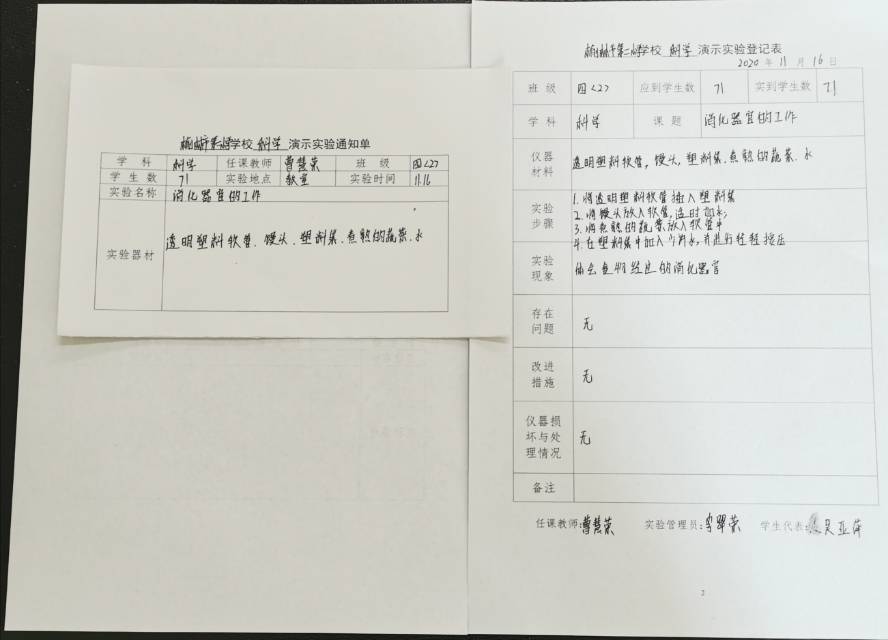 学校 科学 演示实验通知单
学科 科学 任课教师 曹慧荣 班级 四<27
学生数 71 实验地点 教室 实验时间 11.16
实验名称 消化器官的工作
实验器材 透明塑料软管、馒头、塑料袋、煮熟的蔬菜、水
学校 科学 演示实验登记表
2020年11月16日
班级 四<27 应到学生数 71 实到学生数 71
学科 科学 课题 消化器官的工作
仪器材料 透明塑料软管,馒头,塑料袋.煮熟的蔬菜.水
实验步骤
1.将透明塑料软管插入塑料袋
2.将馒头放入软管,适时加水;
3.将煮熟的蔬菜放入软管中
4.在塑料袋中加入少许水,并进行轻轻挤压
实验现象 体会食物经过的消化器官
存在问题 无
改进措施 无
仪器损坏与处理情况 无
备注
任课教师:曹慧荣 实验管理员:李翠荣 学生代表:
2